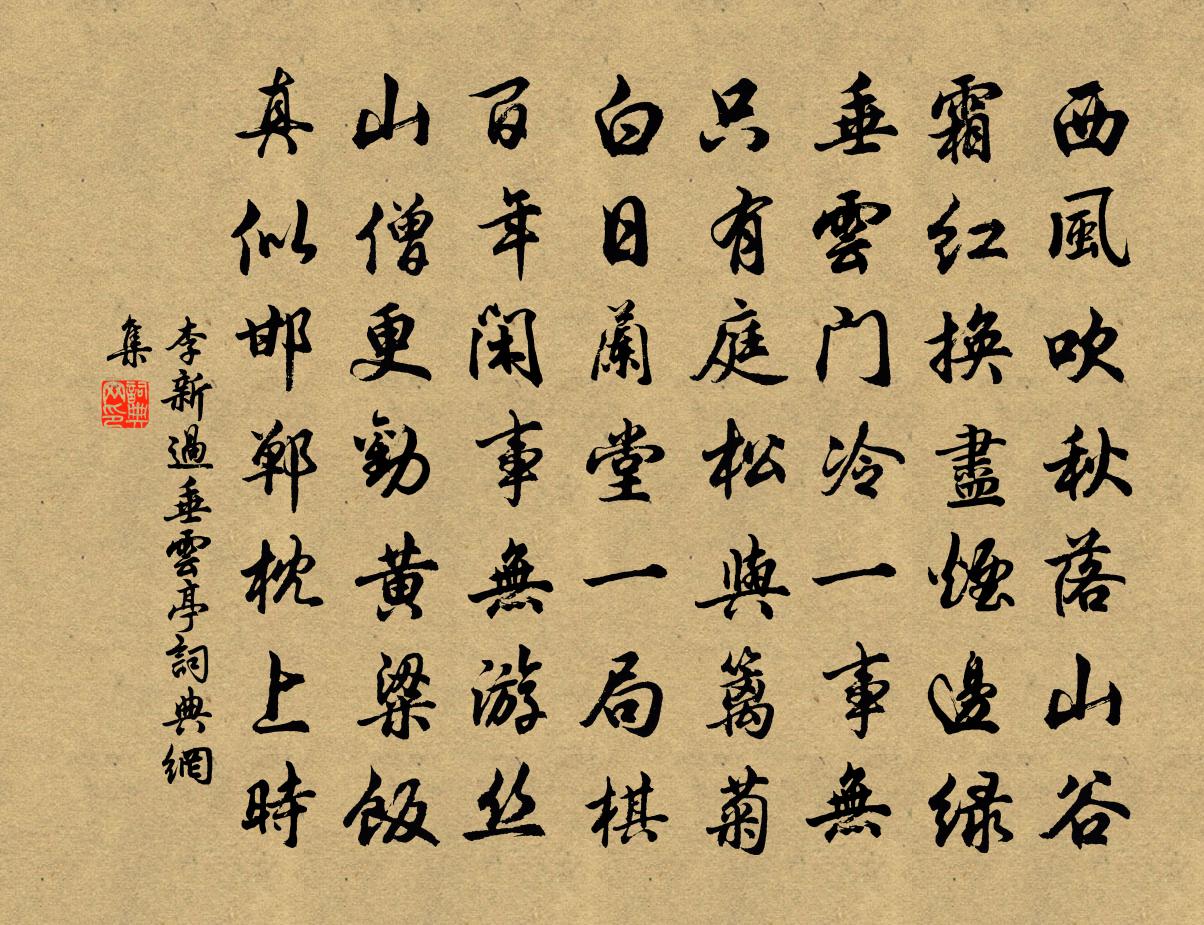 西風吹秋落山谷
霜红换盡煙邊绿
垂雲门冷一事無
只有庭松與籬菊
白日蘭堂一局棋
百年闲事無游丝
山僧更勸黄粱飯
真似邯鄲枕上時
李新過垂雲亭詞典網
集
詞典网印